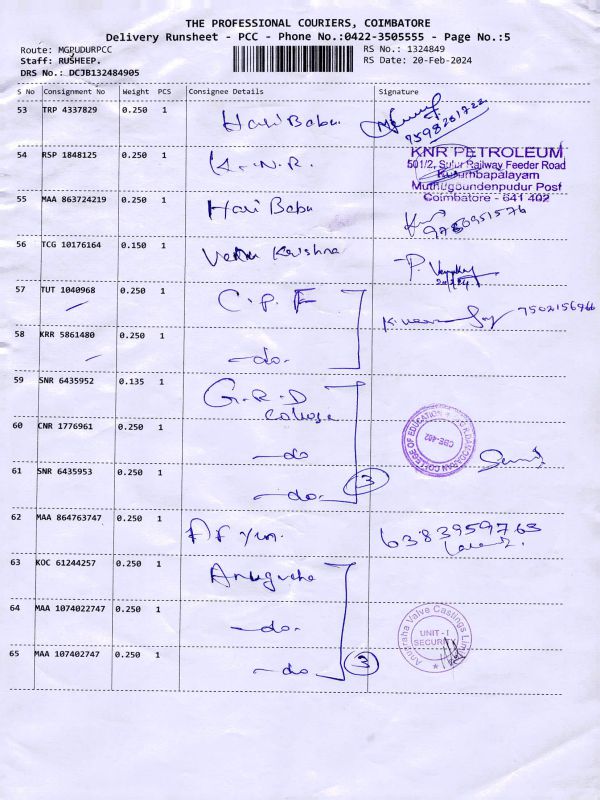 THE PROFESSIONAL COURIERS, COIMBATORE
Delivery Runsheet - PCC - Phone No.:0422-3505555 - Page No.:5
Route: MGPUDURPCC
RS No.: 1324849
Staff: RUSHEEP.
RS Date: 20-Feb-2024
DRS No.: DCJB132484905
S No Consignment No Weight PCS Consignee Details Signature
53 TRP 4337829 0.250 1 Hari Babu 9598261722
54 RSP 1848125 0.250 1 K.N.R.
KNR PETROLEUM
501/2, Sulur Railway Feeder Road
Kurumbapalayam
Muthugoundenpudur Post
Coimbatore - 641 402
55 MAA 863724219 0.250 1 Hari Babu
56 TCG 10176164 0.150 1 Krishna P.
57 TUT 1040968 0.250 1 C.P.F
7502156966
58 KRR 5861480 0.250 1 -do.
59 SNR 6435952 0.135 1 G.R.D
College
60 CNR 1776961 0.250 1 -do
COLLEGE OF EDUCATION
CBE-402
61 SNR 6435953 0.250 1 -do. 3
62 MAA 864763747 0.250 1 6383959763
63 KOC 61244257 0.250 1 Anugraha
64 MAA 1074022747 0.250 1 -do.
Anugraha Valve Castings Limited
UNIT - I
SECURITY
65 MAA 107402747 0.250 1 -do 3